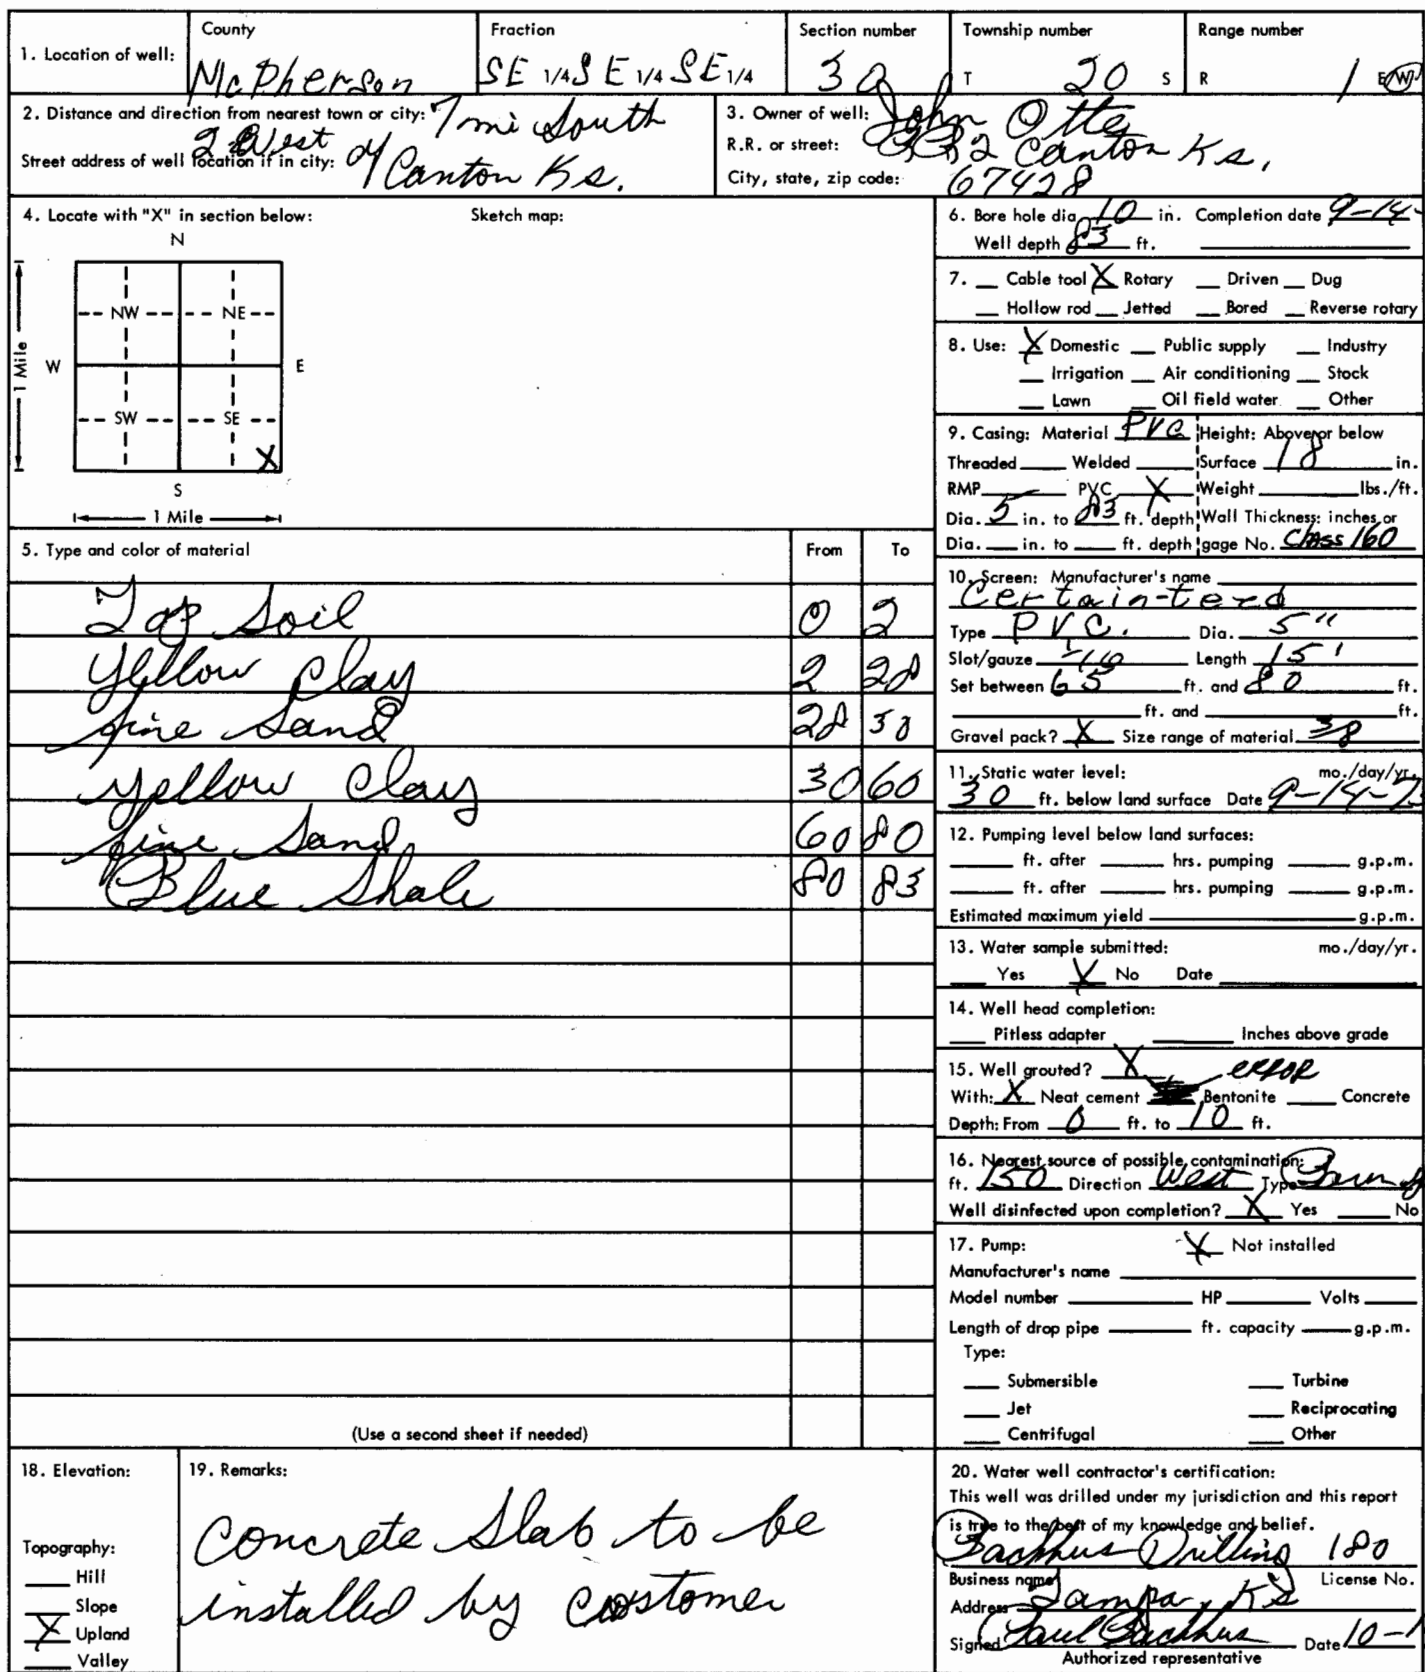 1. Location of well: County McPherson Fraction SE 1/4 SE 1/4 SE 1/4 Section number 30 Township number T 20 S Range number R 1 E/W
2. Distance and direction from nearest town or city: 7 mi South
2 West
Street address of well location if in city: of Canton Ks.
3. Owner of well: John Otte
R.R. or street: RR2 Canton Ks,
City, state, zip code: 67428
4. Locate with "X" in section below: Sketch map:
N
NW NE
W E
1 Mile
SW SE
X
S
1 Mile
5. Type and color of material From To
Top Soil 0 2
Yellow Clay 2 28
fine Sand 28 30
yellow Clay 30 60
fine Sand 60 80
Blue Shale 80 83
(Use a second sheet if needed)
6. Bore hole dia. 10 in. Completion date 9-14-
Well depth 83 ft.
7. Cable tool X Rotary Driven Dug
Hollow rod Jetted Bored Reverse rotary
8. Use: X Domestic Public supply Industry
Irrigation Air conditioning Stock
Lawn Oil field water Other
9. Casing: Material PVC Height: Above or below
Threaded Welded Surface 18 in.
RMP PVC X Weight lbs./ft.
Dia. 5 in. to 83 ft. depth Wall Thickness: inches or
Dia. in. to ft. depth gage No. Class 160
10. Screen: Manufacturer's name
Certain-teed
Type PVC. Dia. 5"
Slot/gauze 1/16 Length 15'
Set between 65 ft. and 80 ft.
ft. and ft.
Gravel pack? X Size range of material 3/8
11. Static water level: mo./day/yr.
30 ft. below land surface Date 9-14-7
12. Pumping level below land surfaces:
ft. after hrs. pumping g.p.m.
ft. after hrs. pumping g.p.m.
Estimated maximum yield g.p.m.
13. Water sample submitted: mo./day/yr.
Yes X No Date
14. Well head completion:
Pitless adapter Inches above grade
15. Well grouted? X error
With: X Neat cement Bentonite Concrete
Depth: From 0 ft. to 10 ft.
16. Nearest source of possible contamination:
ft. 150 Direction West Type
Well disinfected upon completion? X Yes No
17. Pump: X Not installed
Manufacturer's name
Model number HP Volts
Length of drop pipe ft. capacity g.p.m.
Type:
Submersible Turbine
Jet Reciprocating
Centrifugal Other
18. Elevation:
Topography:
Hill
Slope
X Upland
Valley
19. Remarks:
Concrete Slab to be
installed by customer
20. Water well contractor's certification:
This well was drilled under my jurisdiction and this report
is true to the best of my knowledge and belief.
Backhus Drilling 180
Business name License No.
Address Tampa, Ks
Signed Paul Backhus Date 10-1
Authorized representative